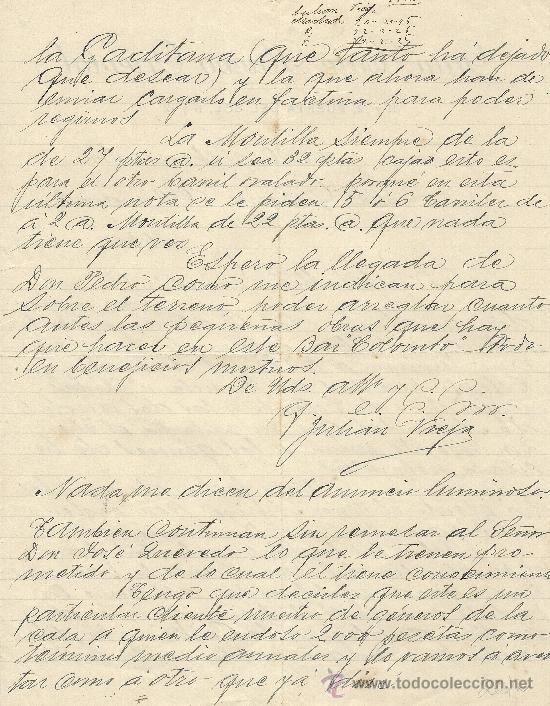 Julian Viej
la Gaditana (que tanto ha dejado
que desear) y la que ahora han de
enviar cargarlo en factura para poder
regirnos
La Montilla siempre de la
de 27 ptas @. si sea 32 pta cajas esto es
para el otro barril ovalado porque en esta
ultima nota se le piden 5 ó 6 barriles de
á 2 @. Montilla de 22 ptas. @. que nada
tiene que ver.
Espero la llegada de
Don Pedro como me indican para
sobre el terreno, poder arreglar cuanto
antes las pequeñas obras que hay
que hacer en este Bar "Colombo" todo
en beneficios mutuos.
De Uds atto y
Julian Vieja
Nada me dicen del anuncio luminoso.
Tambien continuan sin remesar al Señor
Don José Quevedo lo que le tienen pro-
metido y de lo cual el tiene conocimiento
Tengo que decirles que este es un
particular cliente nuestro de generos de la
casa a quien le endoso 2000 pesetas como
termino medio anuales y lo vamos a aven
tar como a otro que ya
www.todocoleccion.net